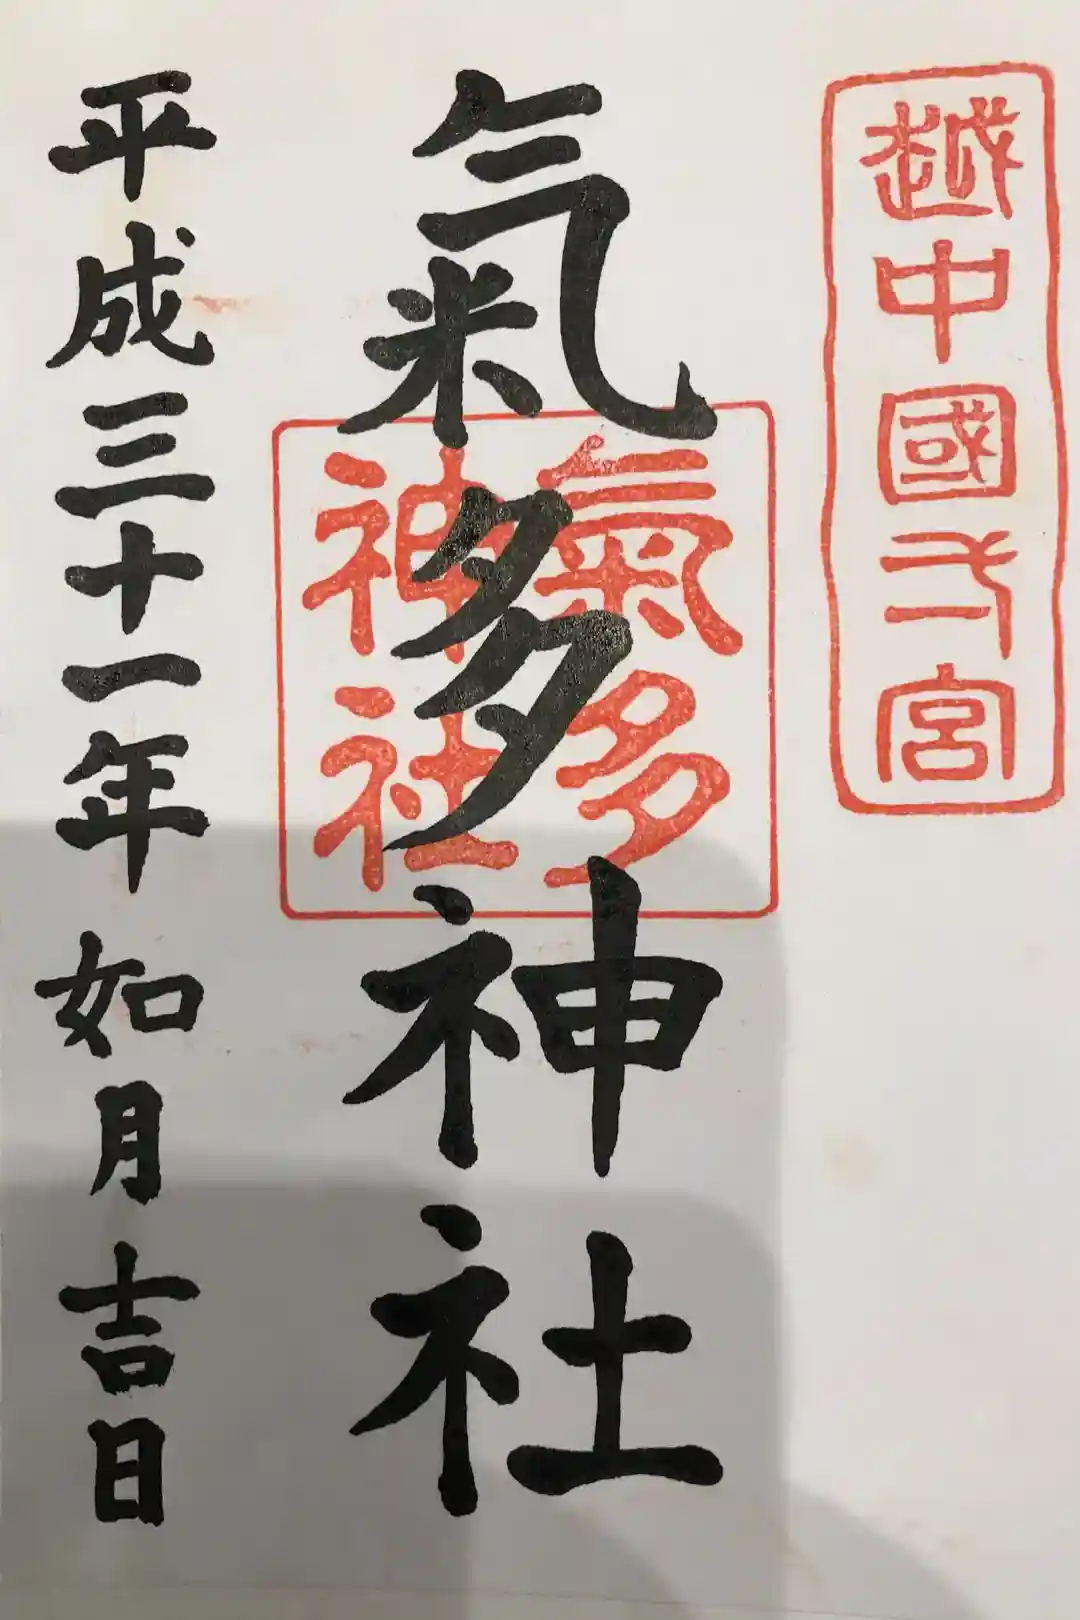 越中國弌宮
氣多神社
氣多
神社
平成三十一年 如月吉日